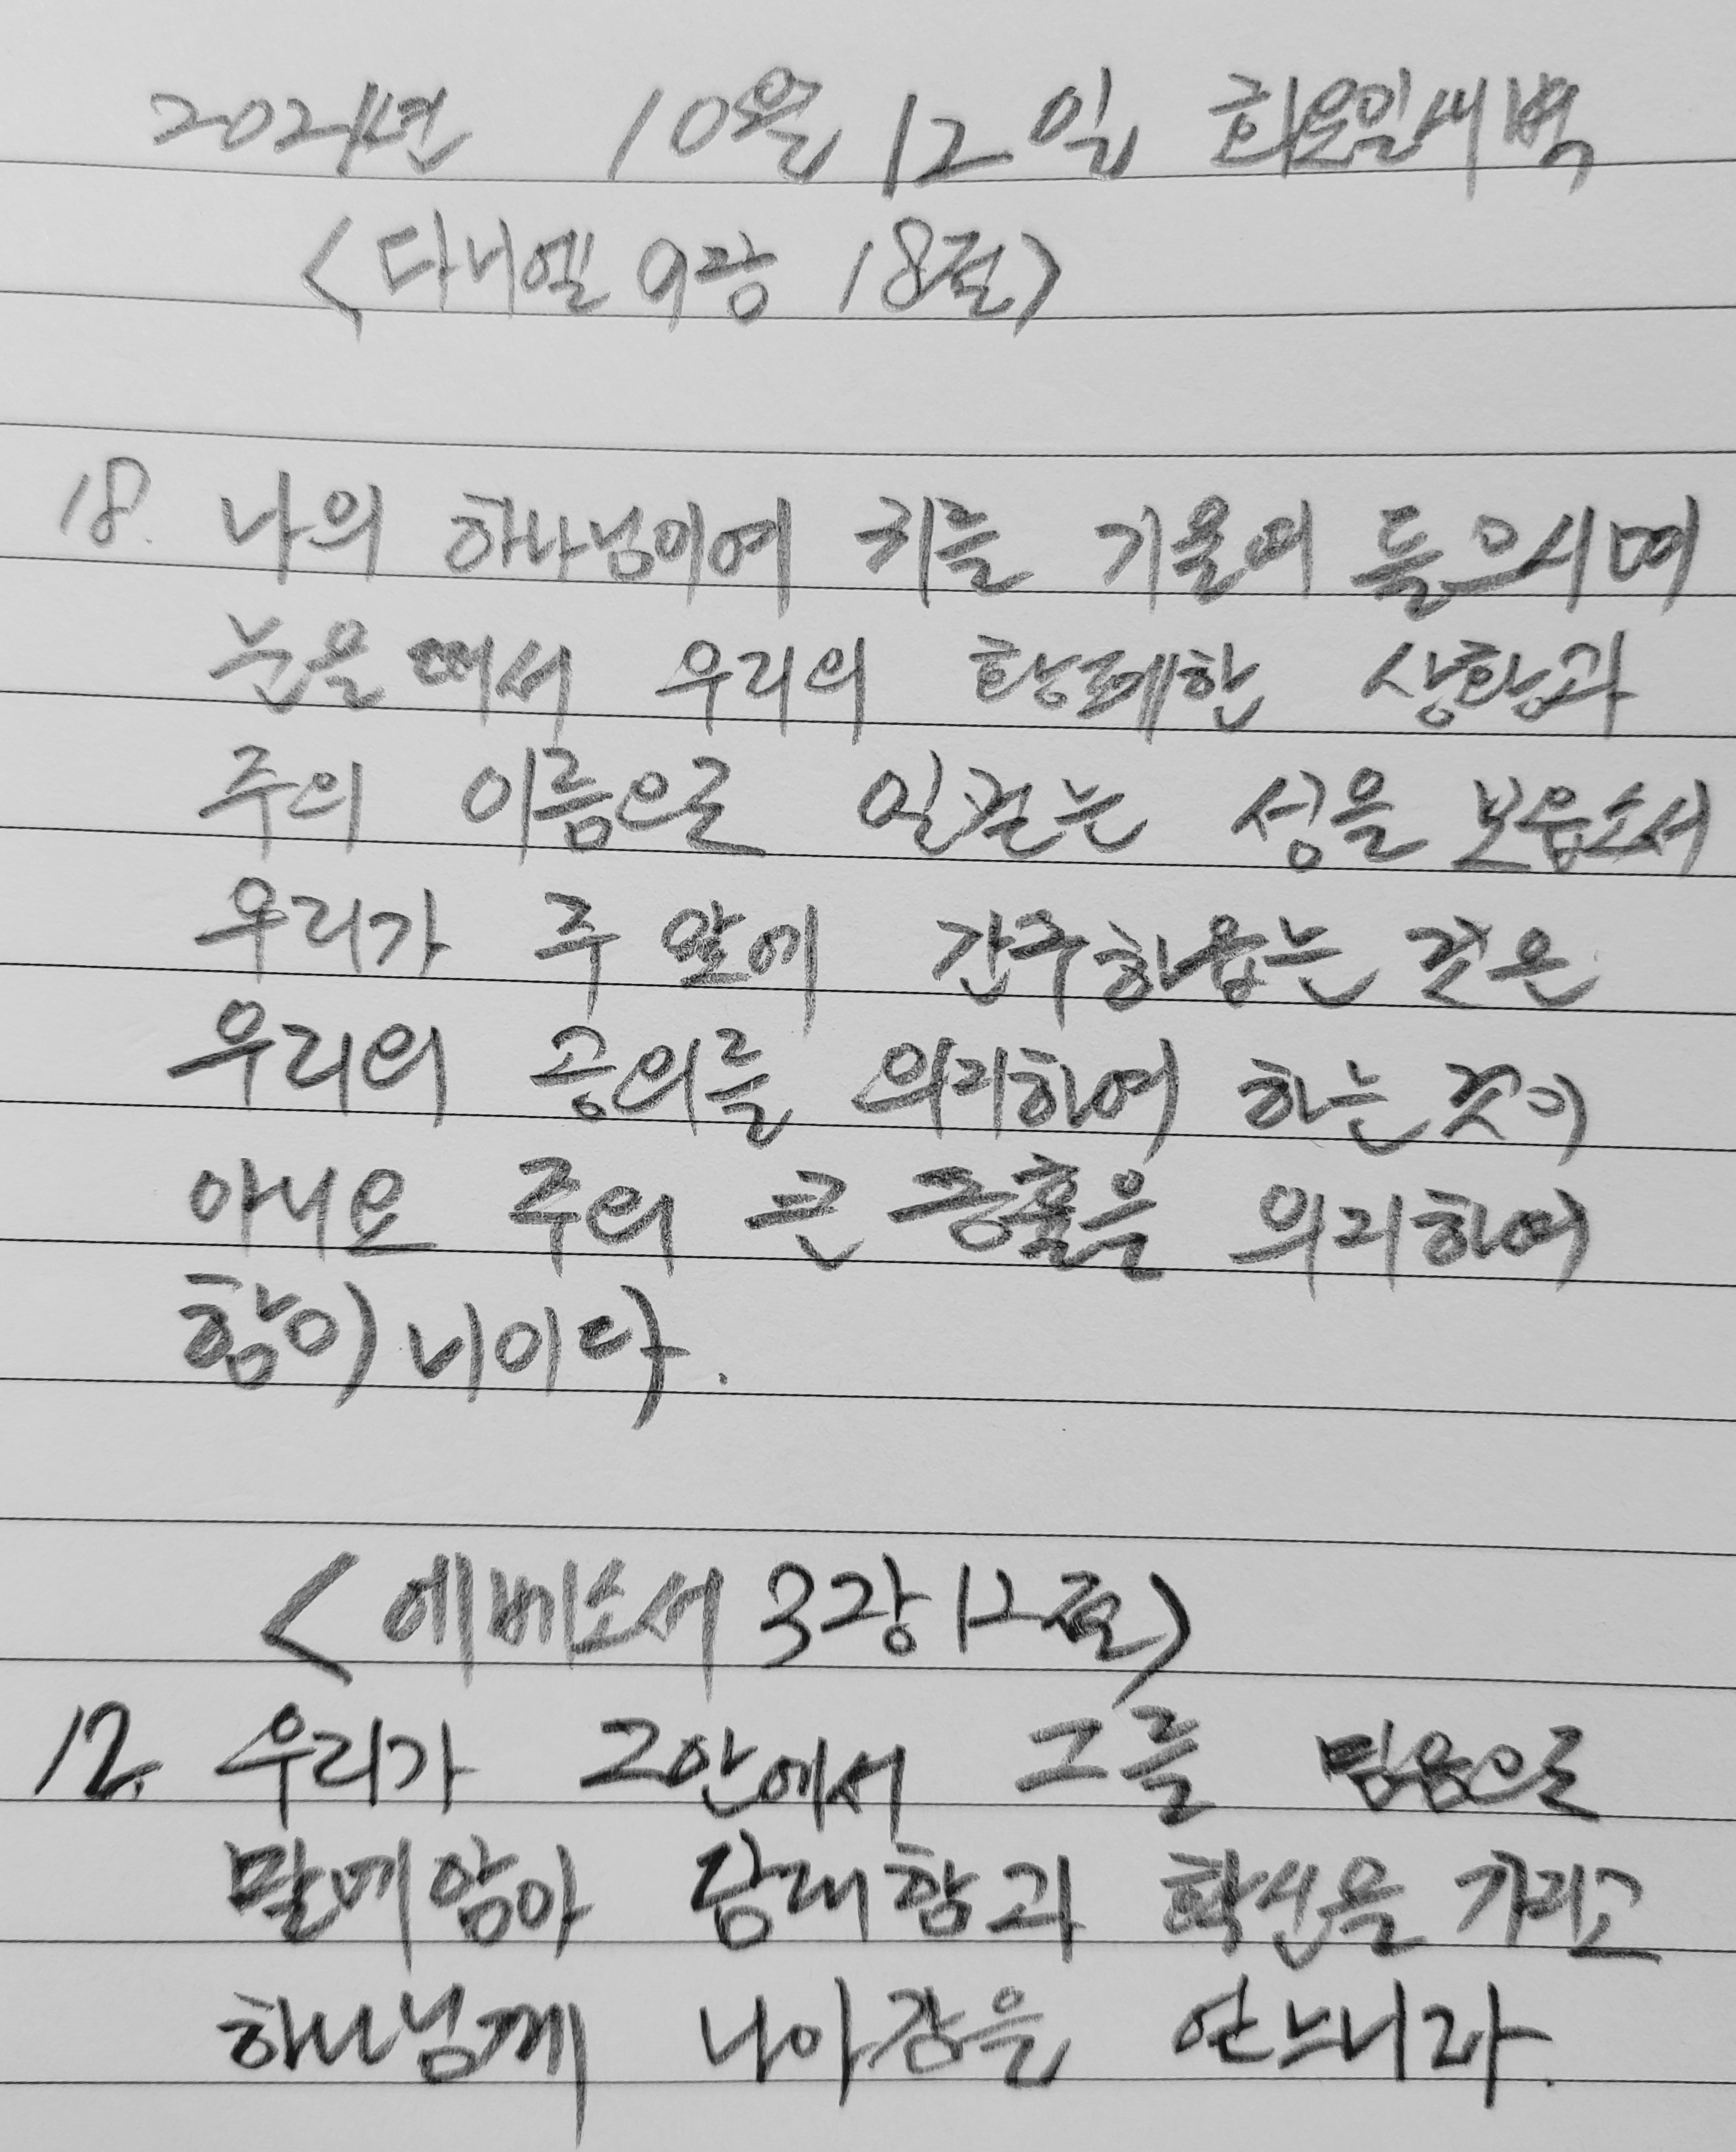 2021년 10월 12일 화요일새벽
<다니엘 9장 18절>
18. 나의 하나님이여 귀를 기울여 들으시며
눈을 떠서 우리의 황폐한 상황과
주의 이름으로 일컫는 성을 보옵소서
우리가 주 앞에 간구하옵는 것은
우리의 공의를 의지하여 하는 것이
아니요 주의 큰 긍휼을 의지하여
함이니이다.
<에베소서 3장 12절>
12. 우리가 그안에서 그를 믿음으로
말미암아 담대함과 확신을 가지고
하나님께 나아감을 얻느니라.